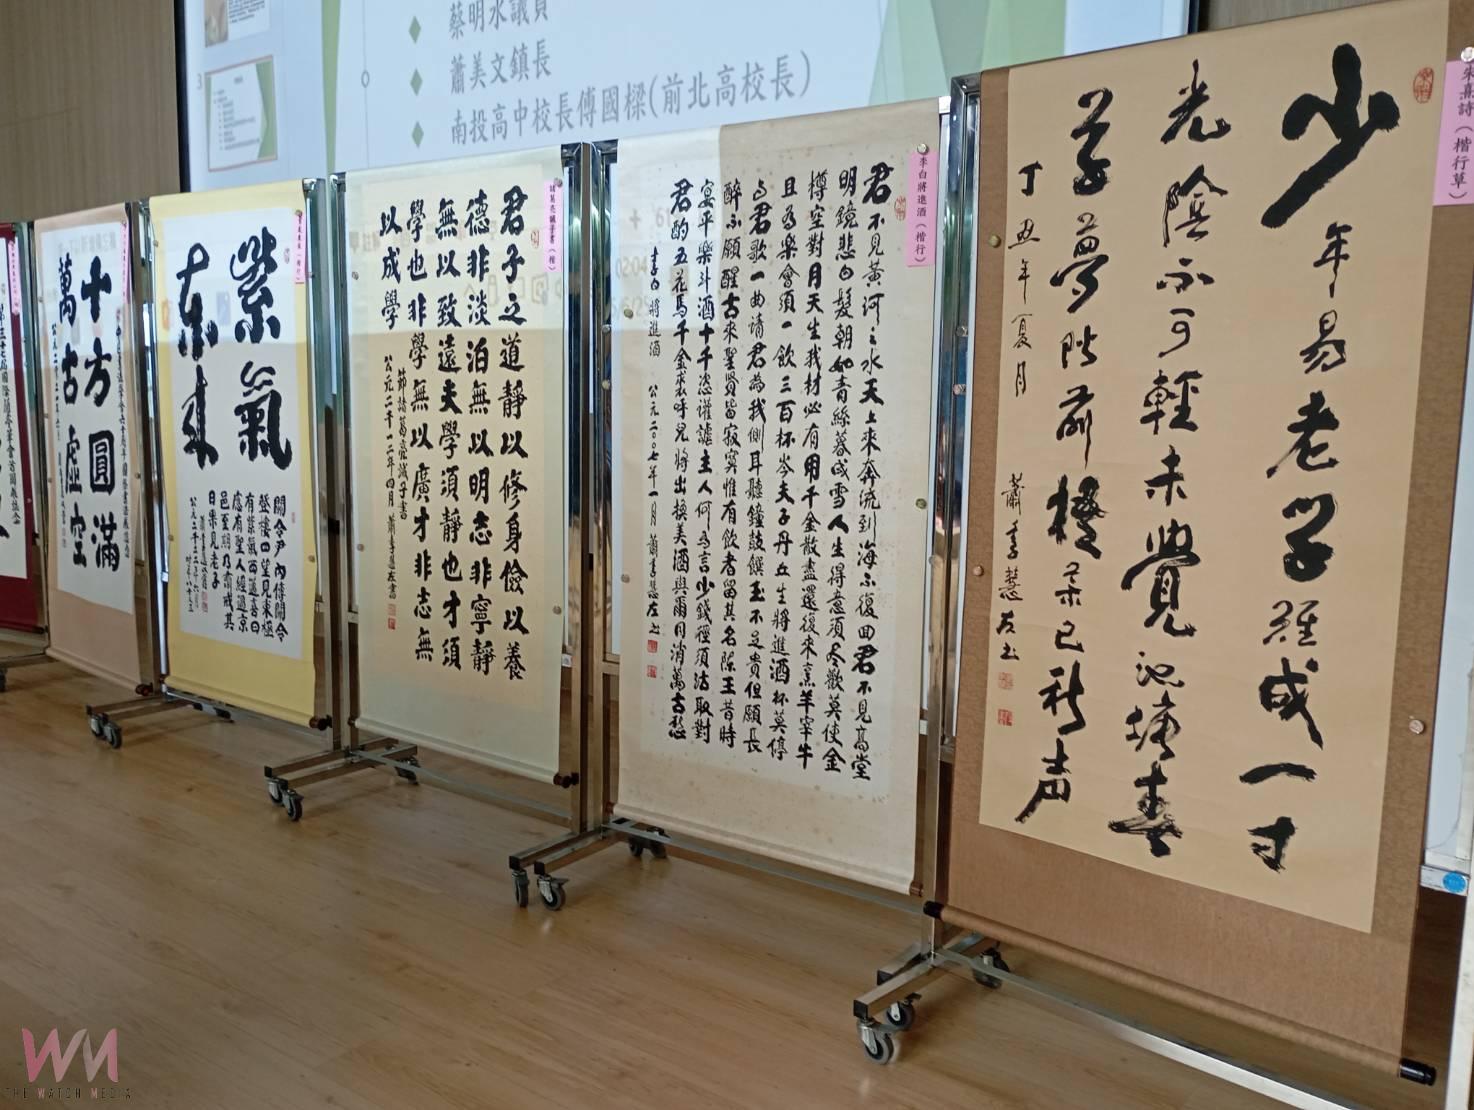 蔡明水議員
蕭美文鎮長
南投高中校長傅國樑(前北高校長)
3
朱熹詩(楷行草)
少年易老學難成一寸
光陰不可輕未覺池塘春
草夢階前梧葉已秋声
丁丑年夏月
蕭季慧左书
李白將進酒(楷行)
君不見黃河之水天上來奔流到海不復回君不見高堂
明鏡悲白髮朝如青絲暮成雪人生得意須尽歡莫使金
樽空對月天生我材必有用千金散盡還復來烹羊宰牛
且為樂會須一飲三百杯岑夫子丹丘生將進酒杯莫停
与君歌一曲請君為我側耳聽鐘鼓饌玉不足貴但願長
醉不願醒古來聖賢皆寂寞惟有飲者留其名陳王昔時
宴平樂斗酒十千恣讙謔主人何為言少錢徑須沽取對
君酌五花馬千金裘呼兒將出換美酒與爾同消萬古愁
李白將進酒 公元二〇〇七年一月 蕭季慧左书
諸葛亮誡子書(楷)
君子之道靜以修身儉以養
德非淡泊無以明志非寧靜
無以致遠夫學須靜也才須
學也非學無以廣才非志無
以成學
節諸葛亮誡子書
公元二千一二年四月 蕭季慧左書
紫氣
東來
關令尹內傳關令
登樓四望見東極
有紫氣西邁喜曰
應有聖人經過京
邑至期乃齋戒其
日果見老子
十方圓滿
萬古虛空